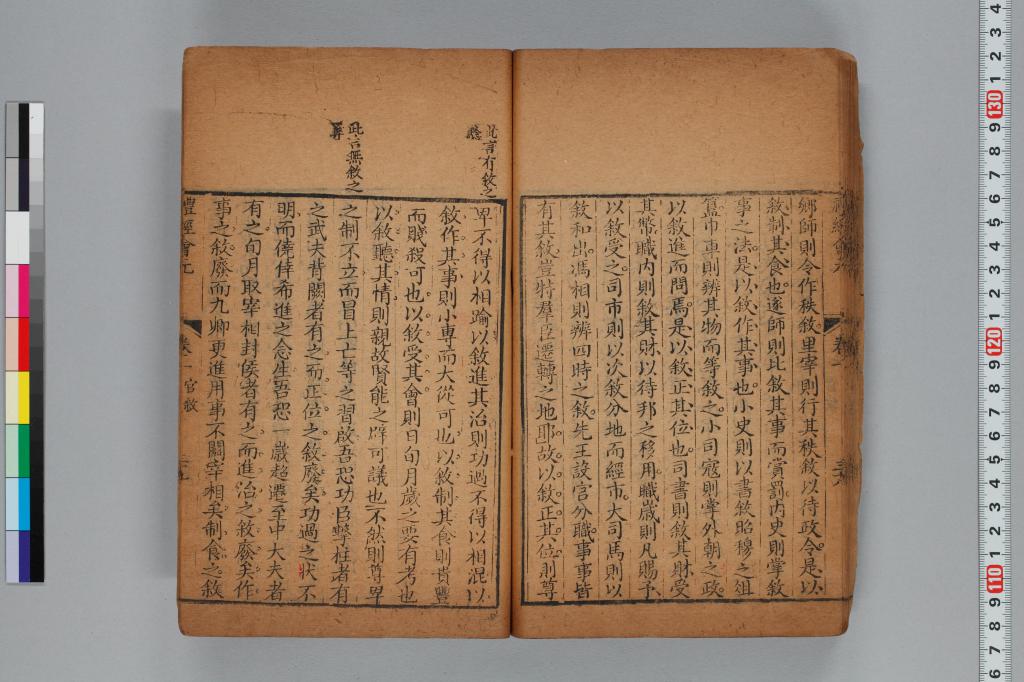 鄉師則令作秩敘里宰則行其秩敘以待政令是以
敘制其食也遂師則比敘其事而賞罰內史則掌敘
事之法是以敘作其事也小史則以書敘昭穆之俎
簋巿專則辨其物而等敘之小司寇則掌外朝之政
以敘進而問焉是以敘正其位也司書則敘其財受
其幣職內則敘其財以待邦之移用職歲則凡賜予
以敘受之司市則以次敘分地而經市大司馬則以
敘和出馮相則辨四時之敘先王設官分職事事皆
有其敘豈特羣臣遷轉之地耶故以敘正其位則尊
此言有敘之
卑不得以相踰以敘進其治則功過不得以相混以
敘作其事則小專而大從可也以敘制其食則貴豐
而賤殺可也以敘受其會則日旬月歲之要有考也
以敘聽其情則親故賢能之辟可議也不然則尊卑
此言無敘之
弊
之制不立而冒上亡等之習啟吾恐功臣擊柱者有
之武夫背關者有之而正位之敘廢矣功過之狀不
明而僥倖希進之念生吾恐一歲超遷至中大夫者
有之旬月取宰相封侯者有之而進治之敘廢矣作
事之敘廢而九卿更進用事不關宰相矣制食之敘
禮經會元
卷一官敘